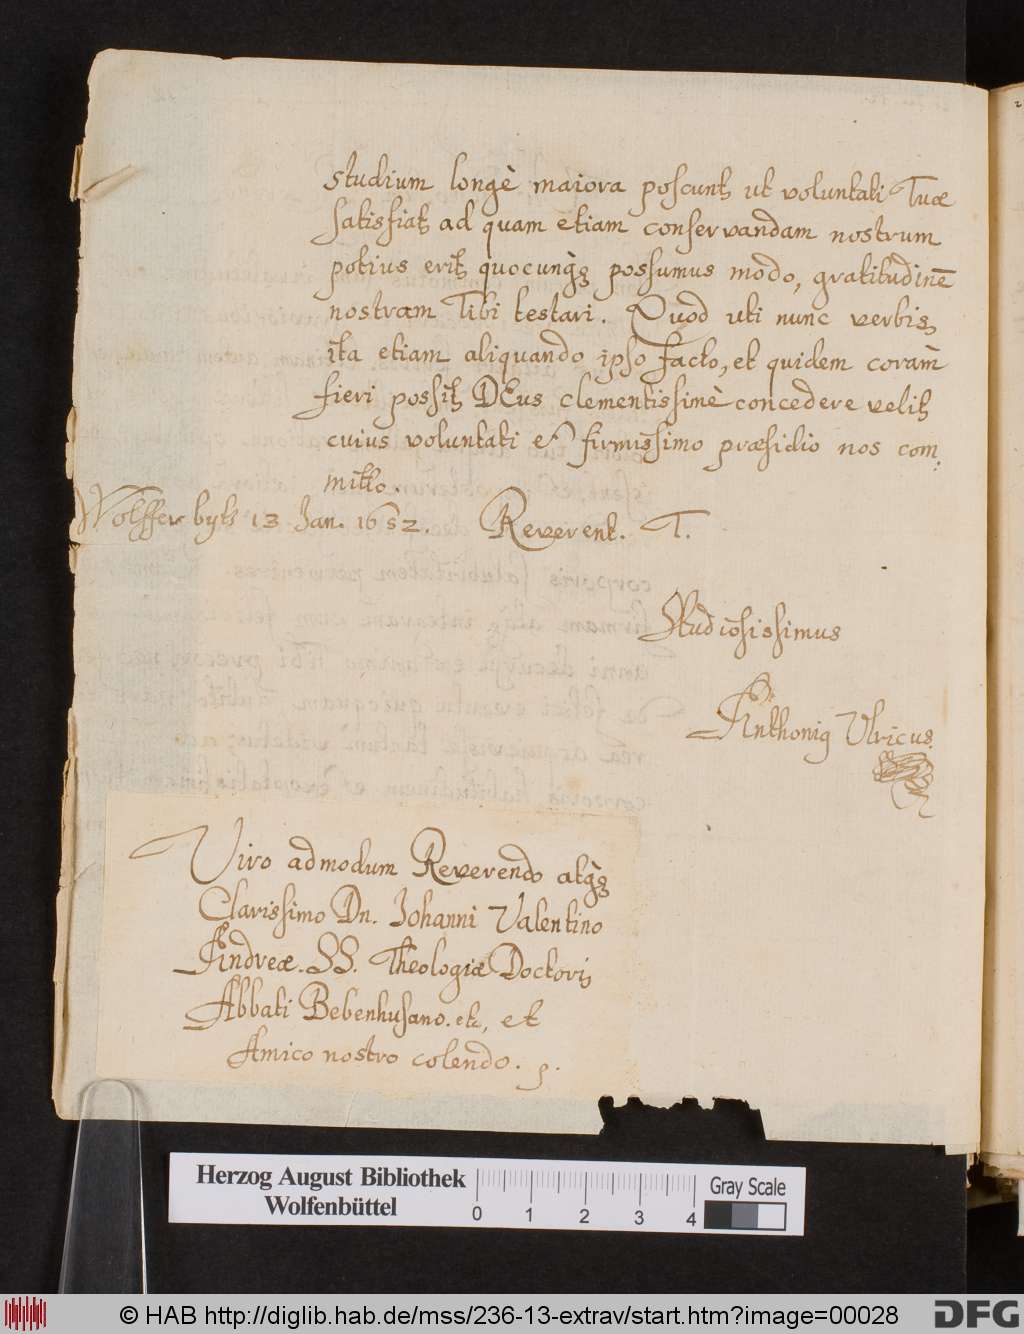 studium longè maiora poscunt ut voluntati Tuæ
satisfiat ad quam etiam conservandam nostrum
potius erit quocunq́; possumus modo, gratitudinē
nostram Tibi testari. Quod uti nunc verbis,
ita etiam aliquando ipso facto, et quidem coràm
fieri possit DEus clementissimè concedere velit
cuius voluntati et firmissimo præsidio nos com,
mitto.
Wolfferbyti 13 Jan. 1652. Reverent. T.
Studiosissimus
Anthoniq Ulricus.
Viro admodum Reverendo atq́;
Clarissimo Dn. Johanni Valentino
Andreæ. SS. Theologiæ Doctori,
Abbati Bebenhusano. etc, et
Amico nostro colendo.
Herzog August Bibliothek
Wolfenbüttel
0 1 2 3 4
Gray Scale
© HAB http://diglib.hab.de/mss/236-13-extrav/start.htm?image=00028
DFG